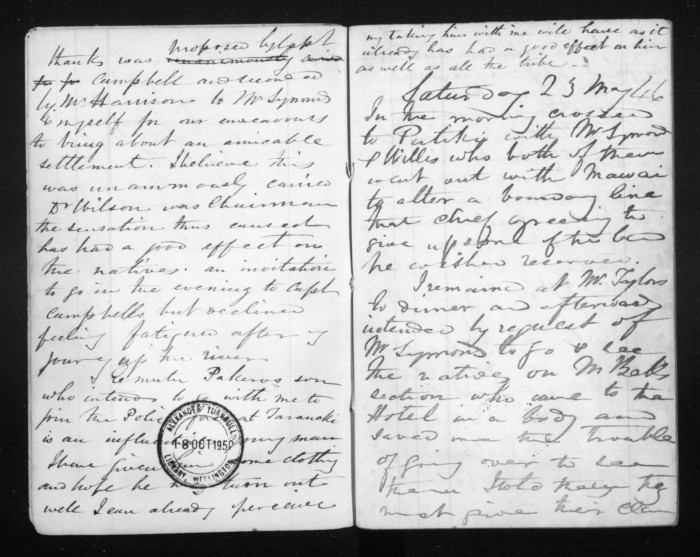 thanks was proposed by Capt
unanimously carried
Campbell and seconded
by Mr Harrison to Mr Symond
& myself for our endeavours
to bring about an amicable
settlement. I believe this
was unanimously carried
Dr Wilson was Chairman
the sensation thus caused
has had a good effect on
the natives. an invitation
to go in the evening to Capt
Campbells but declined
feeling fatigued after my
journey up the river
Pakeros son
who intends to go with me to
join the Police at Taranaki
is an influential young man
I have given him some clothing
and hope he may turn out
well I can already perceive
ALEXANDER TURNBULL
18 OCT 1950
LIBRARY, WELLINGTON
my taking him with me will have as it
already has had a good effect on him
as well as all the tribe.
Saturday 23 May 46
In the morning crossed
to Putiki with Mr Symond
& Willis who both of them
went out with Mawai
to alter a boundary line
that chief agreeing to
give up some of the land
he wished reserved.
I remained at Mr Taylors
to dinner and afterwards
intended by request of
Mr Symond to go & see
the native on Mr Bells
section who came to the
Hotel in a body and
saved me the trouble
of going over to see
them I told them they
must give their claim